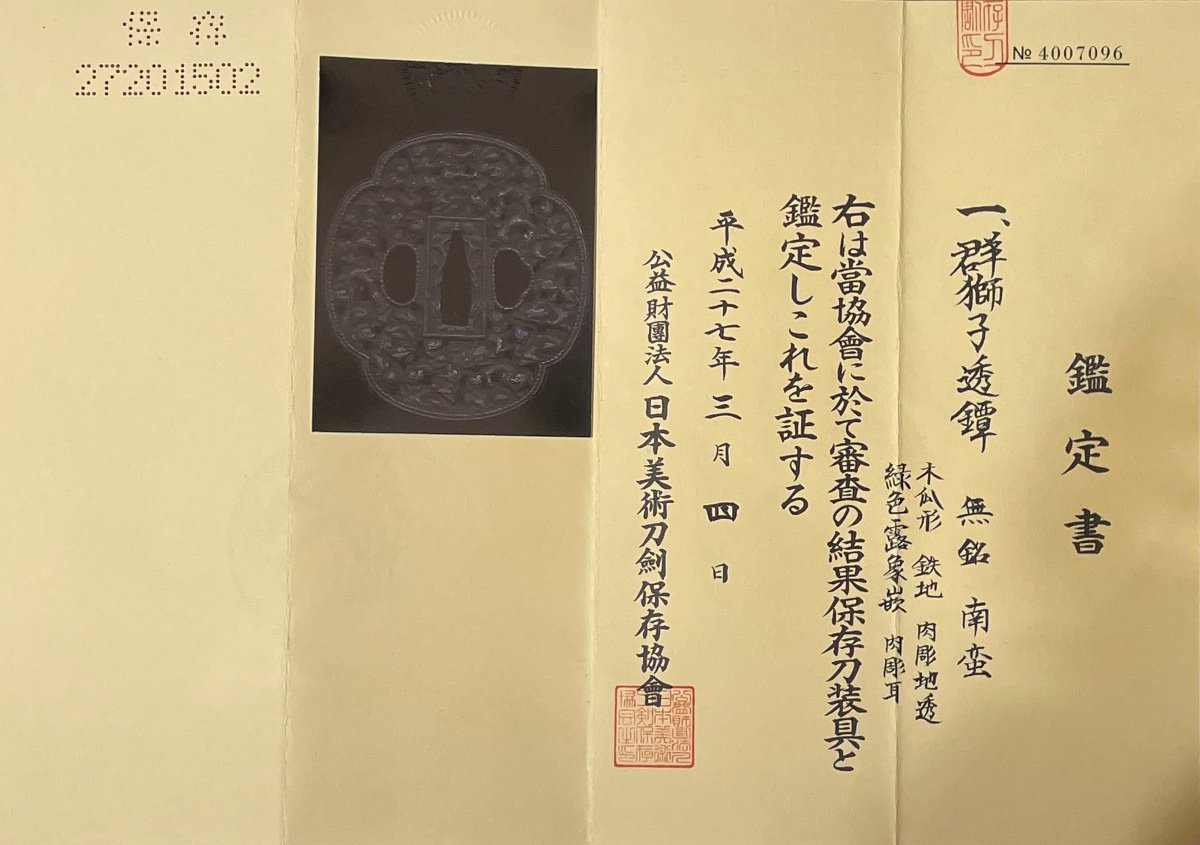 鑑定書
№ 4007096
一、群獅子透鐔 無銘 南蛮
木瓜形 鉄地 肉彫地透
緑色露象嵌 肉彫耳
右は當協會に於て審査の結果保存刀装具と
鑑定しこれを証する
平成二十七年三月四日
公益財團法人 日本美術刀劍保存協會
保存
27201502